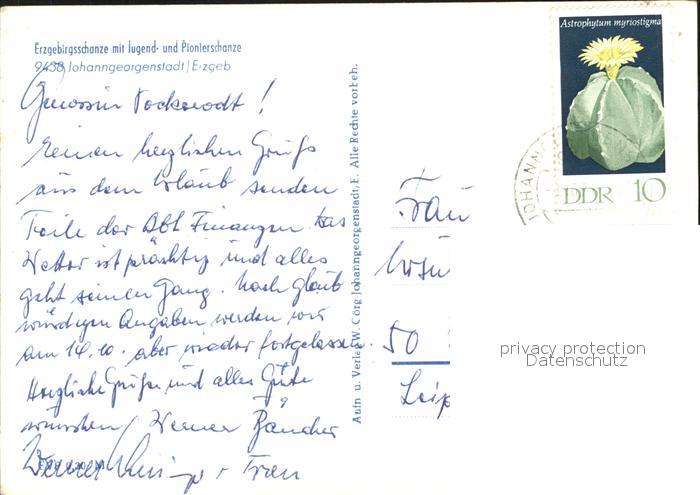 Erzgebirgsschanze mit Jugend- und Pionierschanze
9438 Johanngeorgenstadt/Erzgeb
Genossin Vockerodt!
Einen herzlichen Gruß
aus dem Urlaub senden
Teile der Abt Finanzen. Das
Wetter ist prächtig und alles
geht seinen Gang. Nach glaub
würdigen Angaben werden wir
am 14.10. aber wieder fortgelassen.
Herzliche Grüße und alles Gute
wünschen Werner Bäucher
Werner u Frau
Aufn u. Verlag W. Görg Johanngeorgenstadt, E. Alle Rechte vorbeh.
Astrophytum myriostigma
DDR 10
JOHANNG
Frau
50
Leip
privacy protection
Datenschutz